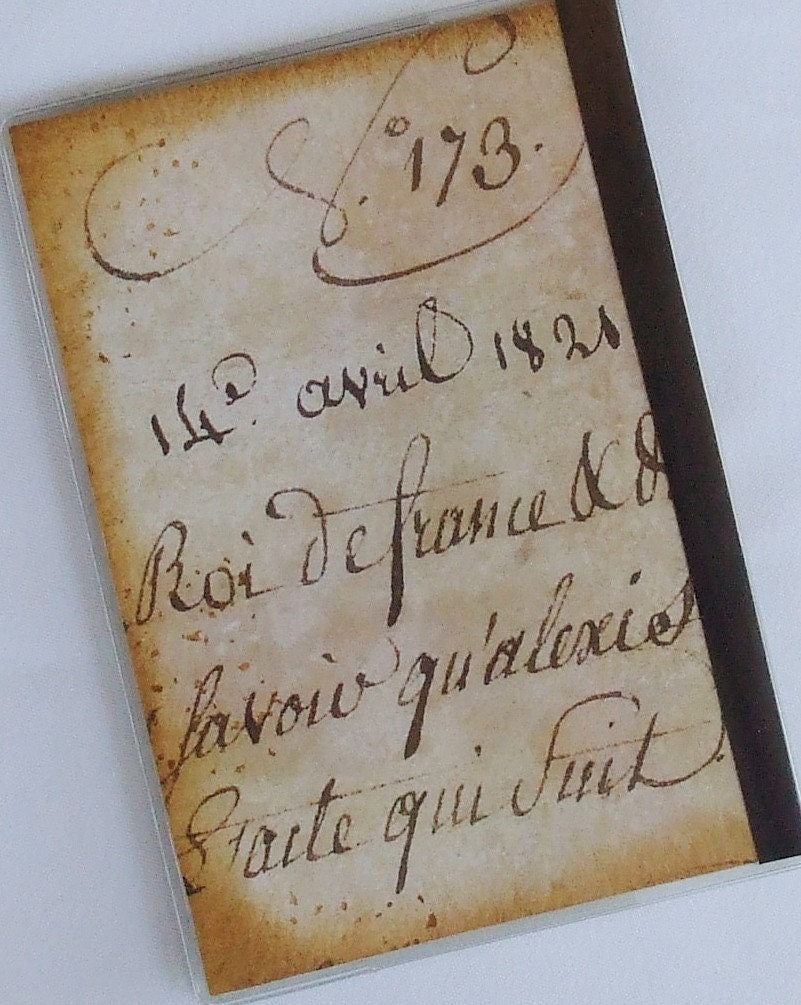 N.° 173.
14e avril 1821
Roi de france & d
savoir qu'alexis
qui suit